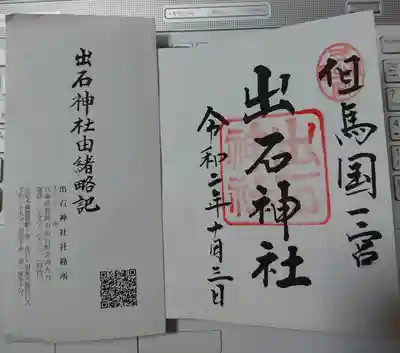 但馬国一宮
出石神社
令和二年十月三日
出石神社由緒略記
出石神社社務所